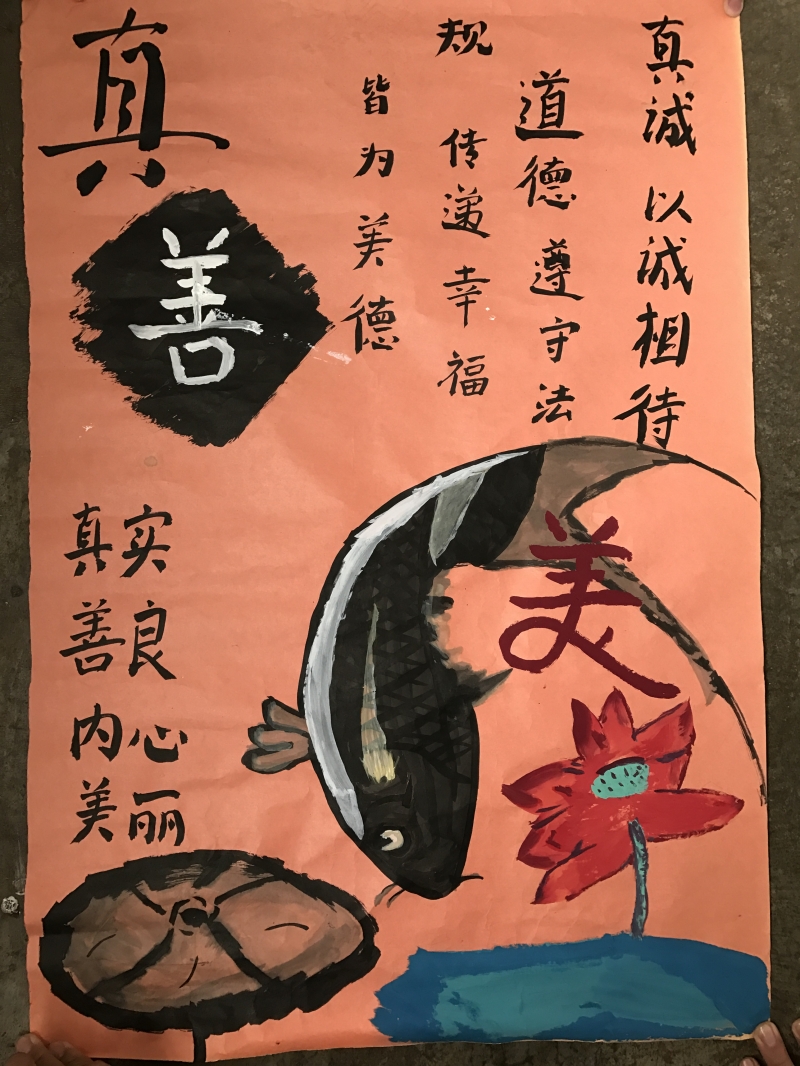 真誠 以誠相待
道德 遵守法
规 传递幸福
皆为美德
真
善
美
真实
善良
内心
美丽